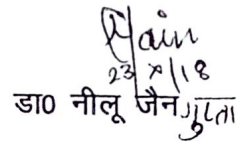 Jain
23/x/18
डा0 नीलू जैन गुप्ता